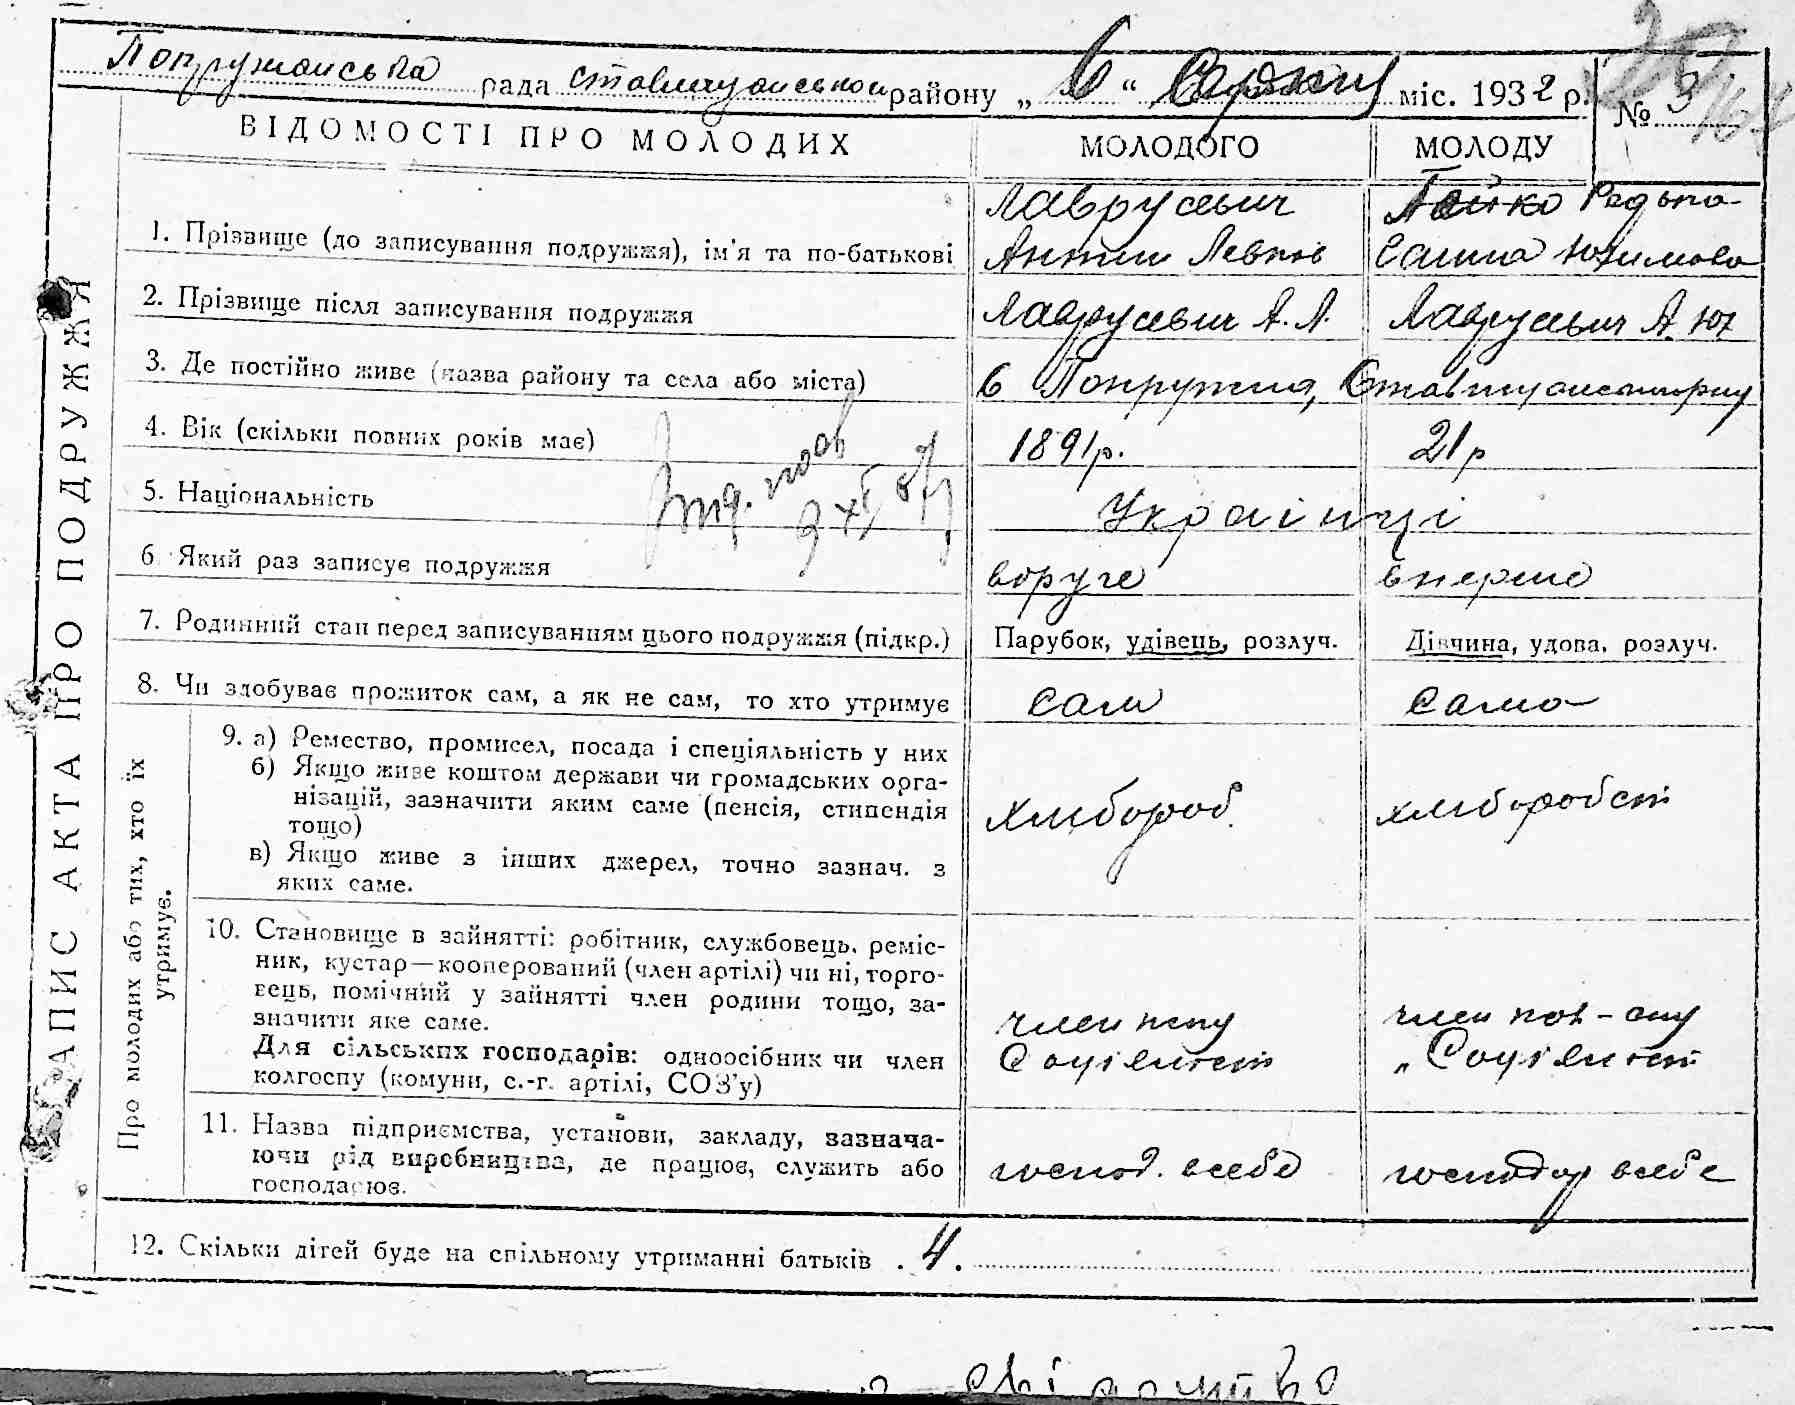 Попружанська рада Ставищанськой району „ 6 “ міс. 1932 р.
№ 3
ВІДОМОСТІ ПРО МОЛОДИХ
МОЛОДОГО
МОЛОДУ
ЗАПИС АКТА ПРО ПОДРУЖЖЯ
1. Прізвище (до записування подружжя), ім'я та по-батькові
Лаврусевич
Антин Левків
Редька
Ганна Юхимова
2. Прізвище після записування подружжя
Лаврусевич А. Л.
Лаврусевич А. Юх
3. Де постійно живе (назва району та села або міста)
с Попружна,
4. Вік (скільки повних років має)
1891 р.
21 р
5. Національність
Українці
6 Який раз записує подружжя
вдруге
вперше
7. Родинний стан перед записуванням цього подружжя (підкр.)
Парубок, удівець, розлуч.
Дівчина, удова, розлуч.
8. Чи здобуває прожиток сам, а як не сам, то хто утримує
сам
сама
Про молодих або тих, хто їх утримує.
9. а) Ремество, промисел, посада і спеціяльність у них
б) Якщо живе коштом держави чи громадських орга-
нізацій, зазначити яким саме (пенсія, стипендія
тощо)
в) Якщо живе з інших джерел, точно зазнач. з
яких саме.
хлібороб
хліборобст
10. Становище в зайнятті: робітник, службовець, реміс-
ник, кустар—кооперований (член артілі) чи ні, торго-
вець, помічний у зайнятті член родини тощо, за-
значити яке саме.
Для сільських господарів: одноосібник чи член
колгоспу (комуни, с.-г. артілі, СОЗ'у)
член
Соціяліст
член
„ Соціяліст
11. Назва підприємства, установи, закладу, зазнача-
ючи рід виробництва, де працює, служить або
господарює.
господ. в себе
господар в себе
12. Скільки дітей буде на спільному утриманні батьків . 4.